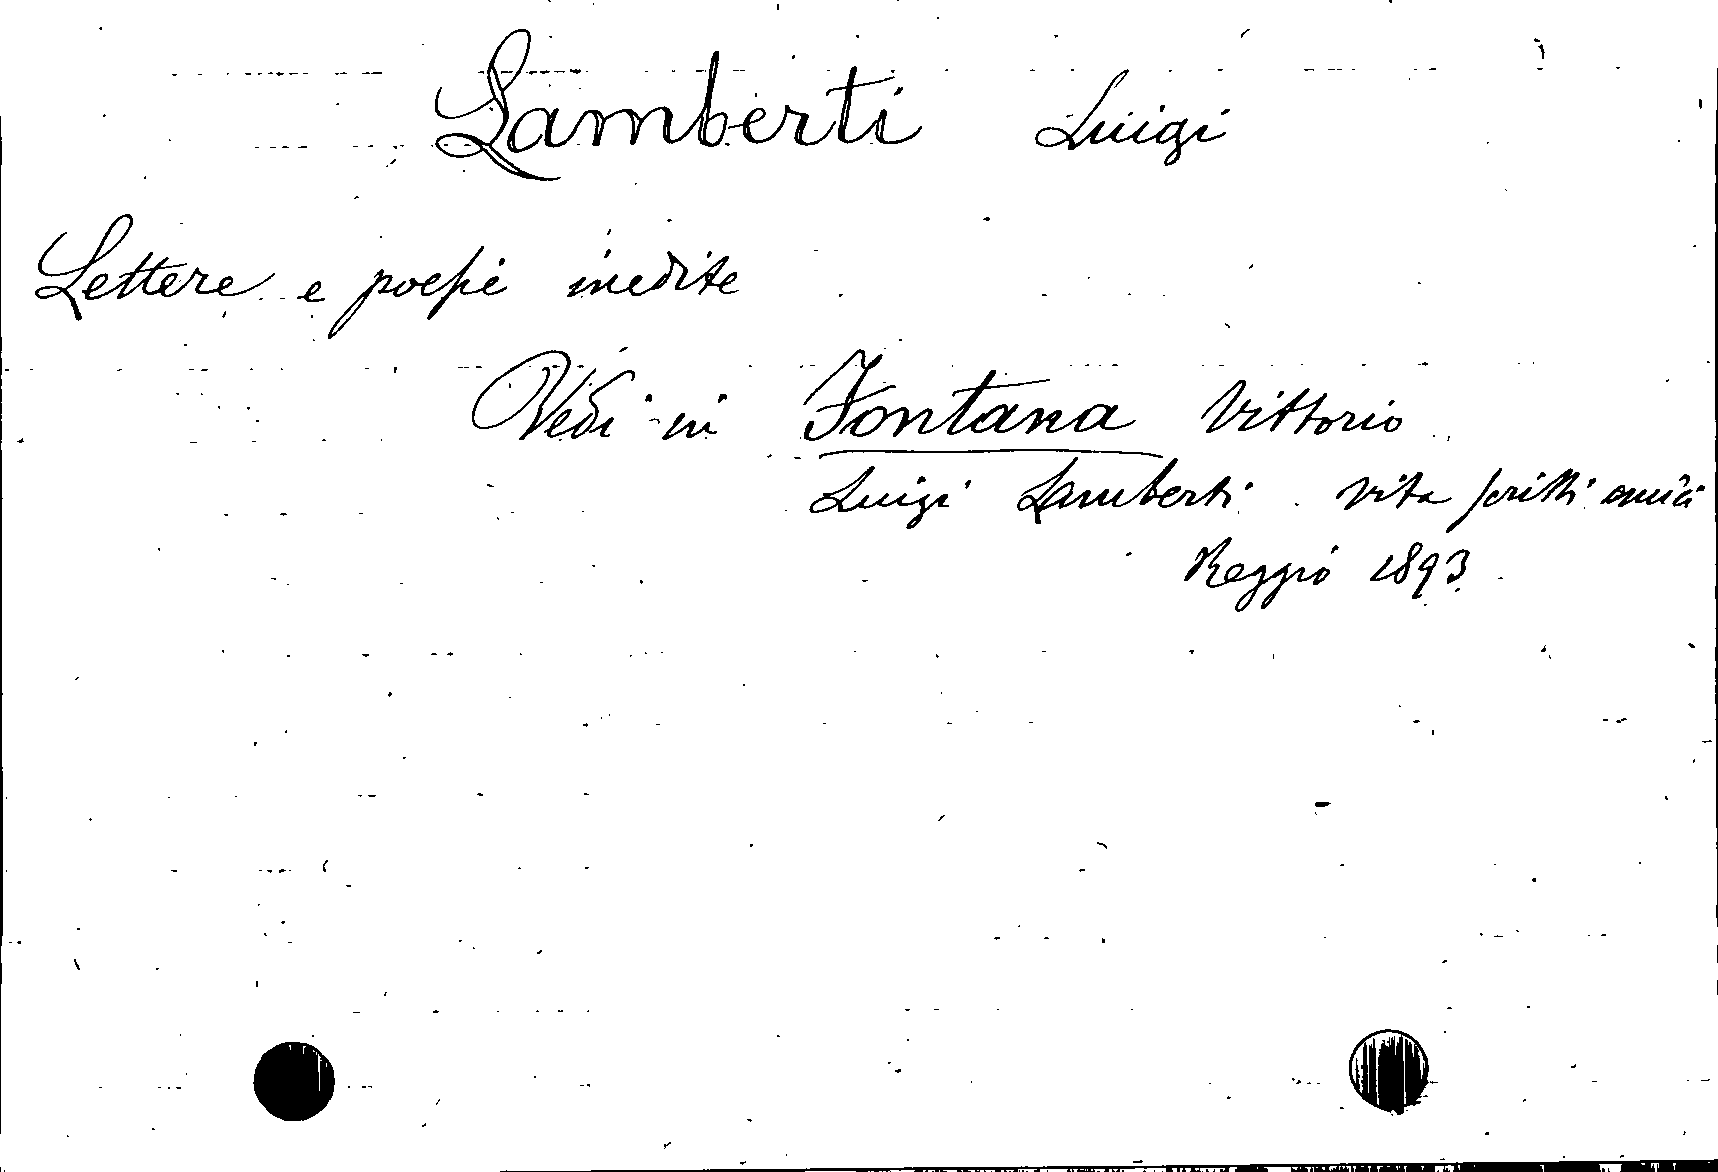 Lamberti Luigi
Lettere e poesie inedite
Vedi in Fontana Vittorio
Luigi Lamberti. vita scritti amici
Reggio 1893